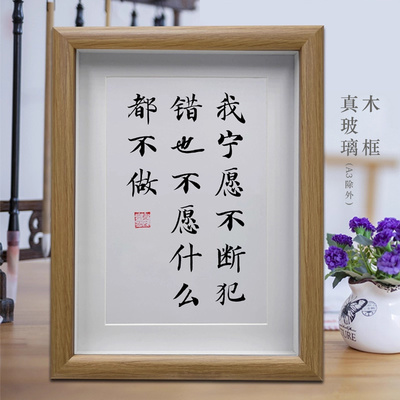 我宁愿不断犯
错也不愿什么
都不做
木框
真玻璃
(A3除外)